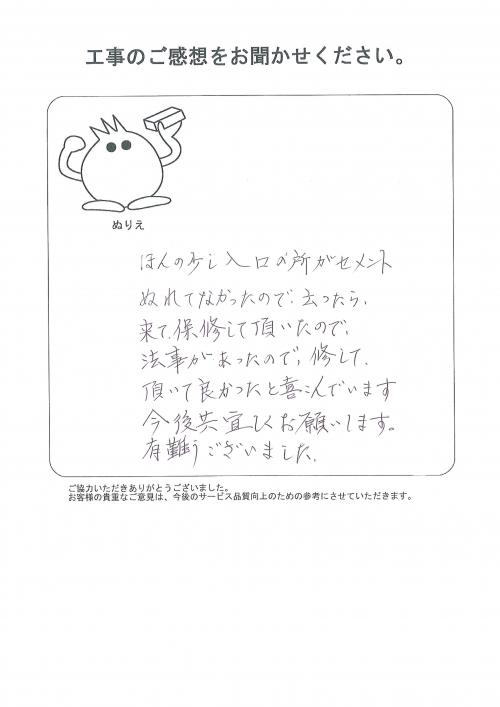 工事のご感想をお聞かせください。
ぬりえ
ほんの少し入口の所がセメント
ぬれてなかったので、云ったら、
来て、保修して頂いたので、
法事があったので、修して、
頂いて良かったと喜こんでいます
今後共宜しくお願いします。
有難うございました。
ご協力いただきありがとうございました。
お客様の貴重なご意見は、今後のサービス品質向上のための参考にさせていただきます。